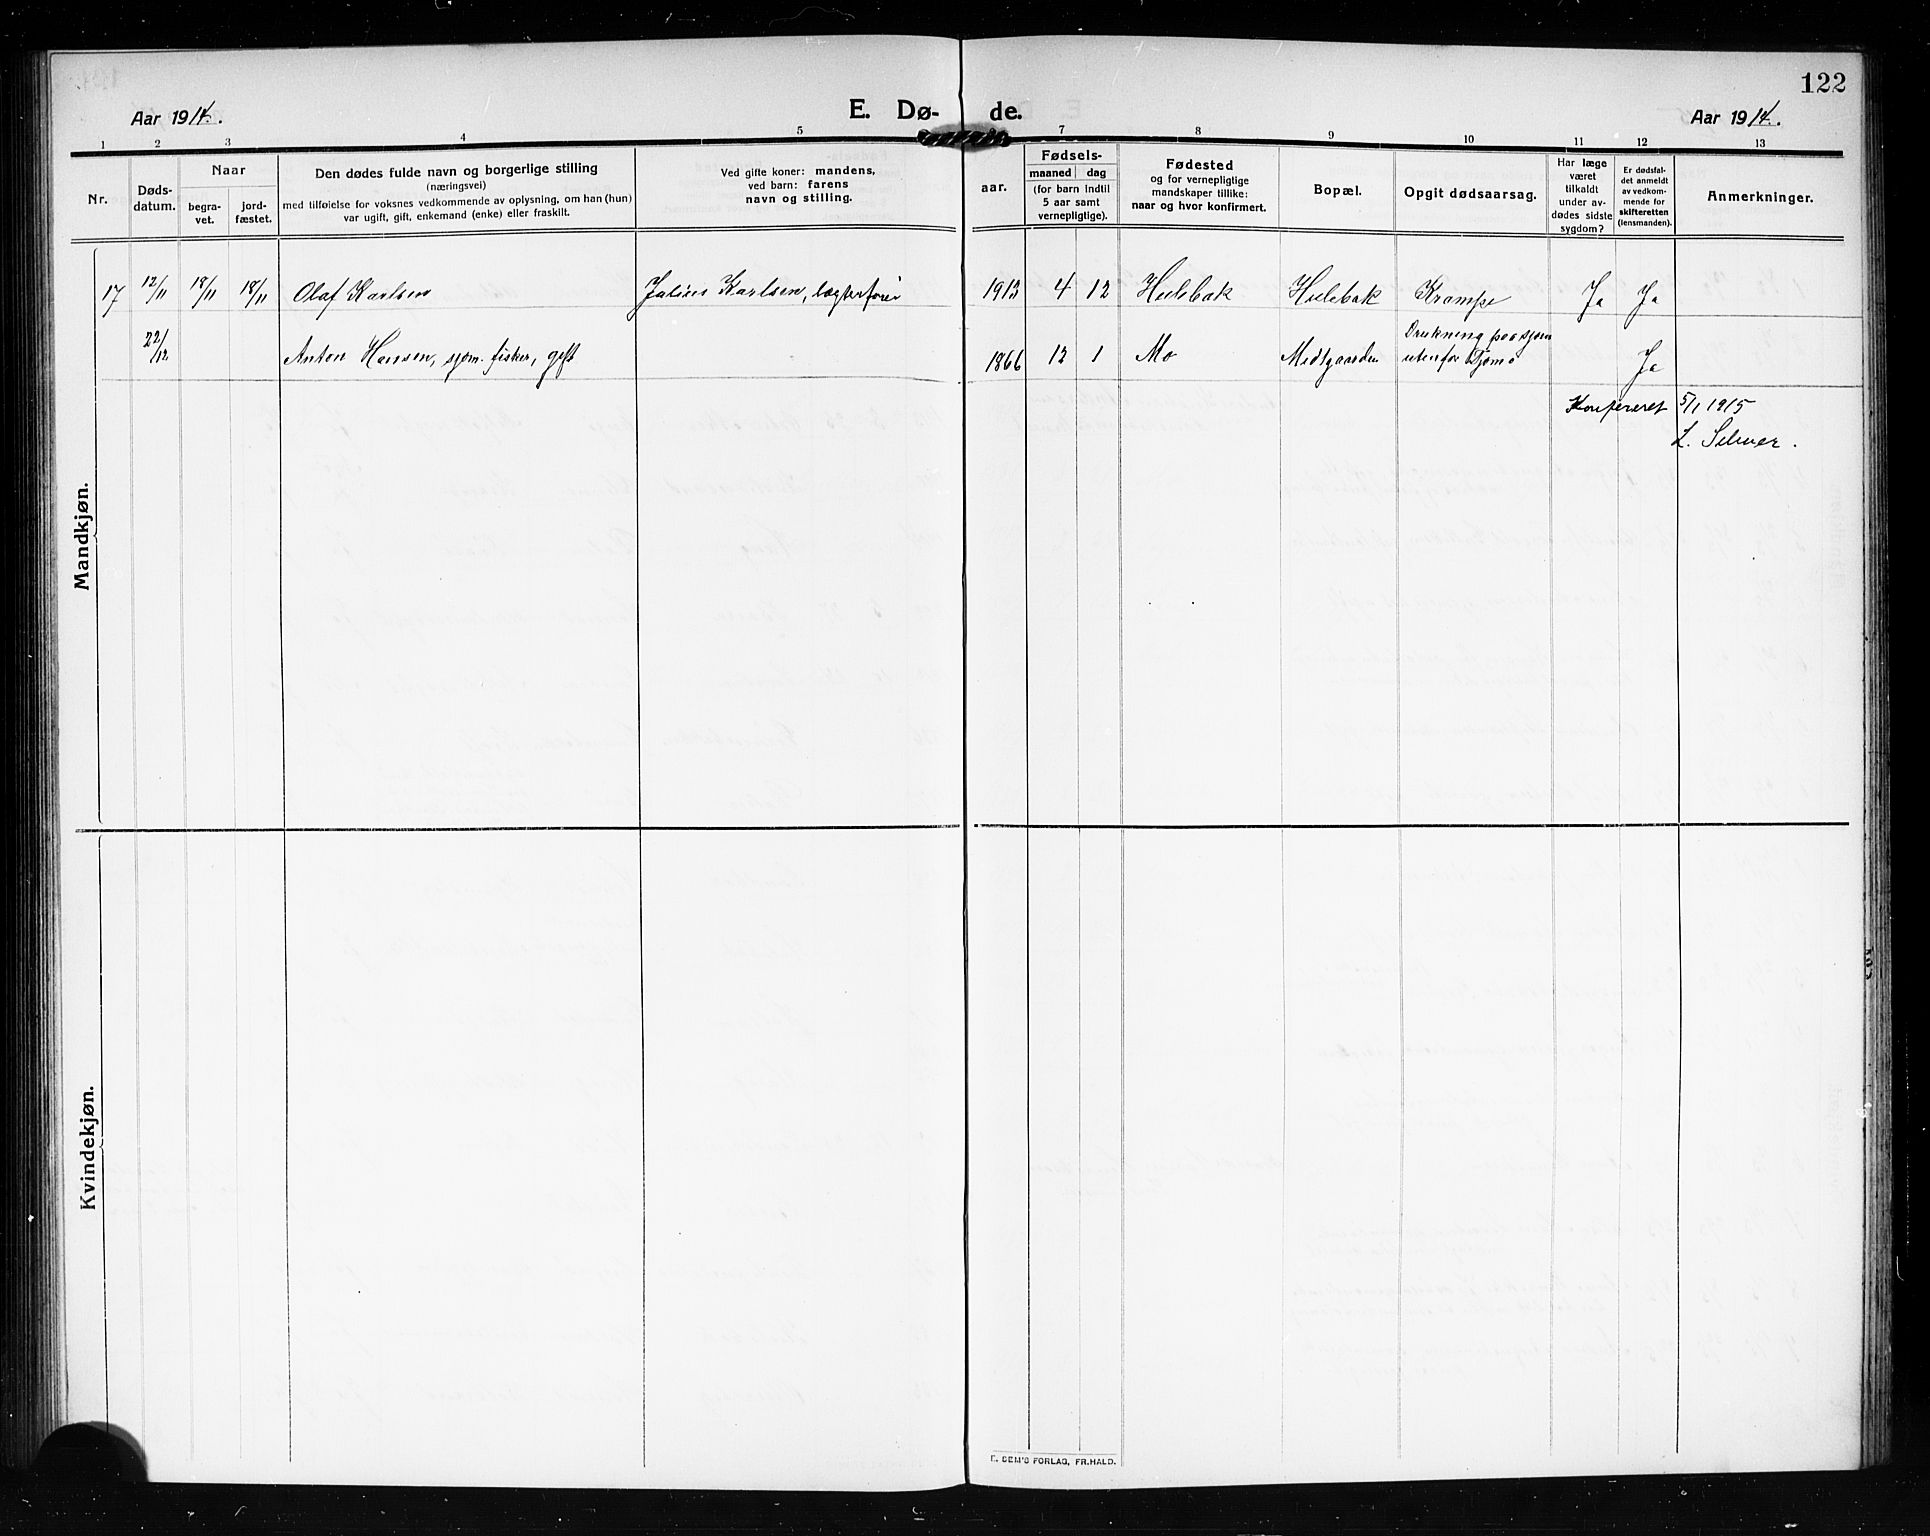 122
Aar 1914.
E. Dø-
de.
Aar 1914.
1 2 3 4 5 7 8 9 10 11 12 13
Nr.
Døds-
datum.
Naar
begra-
vet.
jord-
fæstet.
Den dødes fulde navn og borgerlige stilling
(næringsvei)
med tilføielse for voksnes vedkommende av oplysning, om han (hun)
var ugift, gift, enkemand (enke) eller fraskilt.
Ved gifte koner: mandens,
ved barn: farens
navn og stilling.
aar.
Fødsels-
maaned dag
(for barn indtil
5 aar samt
vernepligtige).
Fødested
og for vernepligtige
mandskaper tillike:
naar og hvor konfirmert.
Bopæl.
Opgit dødsaarsag.
Har læge
været
tilkaldt
under av-
dødes sidste
sygdom?
Er dødsfal-
det anmeldt
av vedkom-
mende for
skifteretten
(lensmanden).
Anmerkninger.
Mandkjøn.
17 12/11 18/11 18/11 Olaf Karlsen Julius Karlsen, lægterfører 1913 4 12 Hulebak Hulebak Krampe Ja Ja
22/12 Anton Hansen, sjøm. fisker, gift 1866 12 1 Mo Medtgaarden Drukning paa sjøen
utenfor Tjømø Ja
Konfereret 5/1 1915
Kvindekjøn.
E. SEM'S FORLAG, FR.HALD.